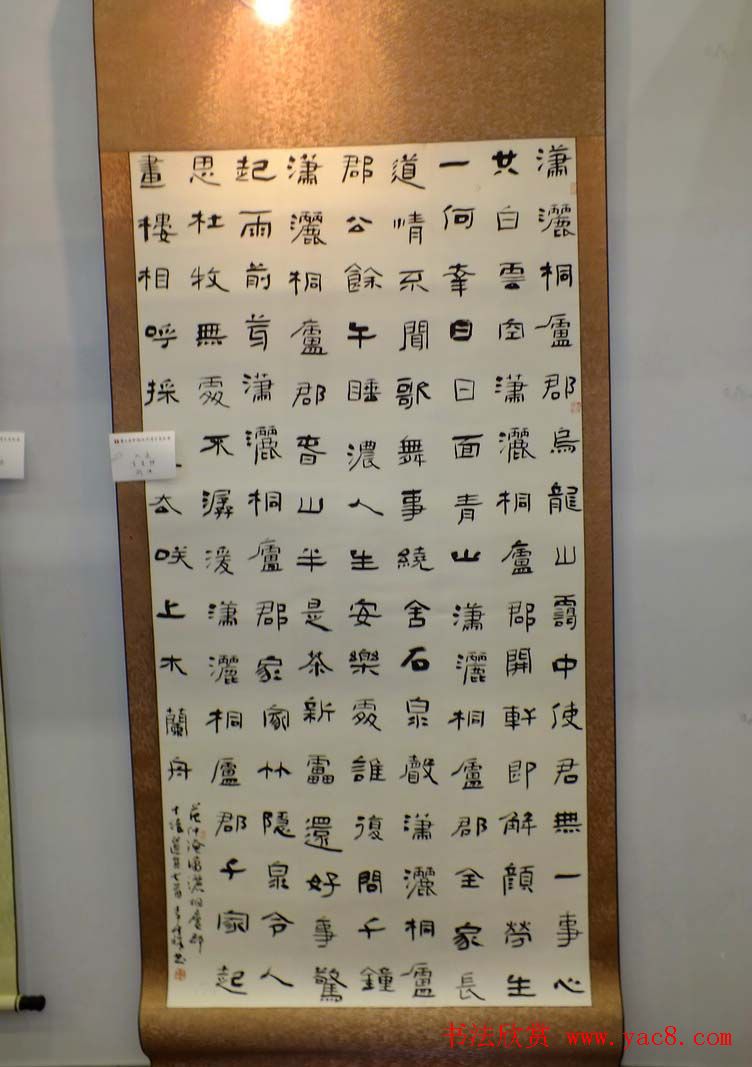 瀟灑桐廬郡烏龍山靄中使君無一事心
共白雲空瀟灑桐廬郡開軒即解顏勞生
一何幸日日面青山瀟灑桐廬郡全家長
道情不聞歌舞事繞舍石泉聲瀟灑桐廬
郡公餘午睡濃人生安樂處誰復問千鐘
瀟灑桐廬郡春山半是茶新雷還好事驚
起雨前芽瀟灑桐廬郡家家竹隱泉令人
思杜牧無處不潺湲瀟灑桐廬郡千家起
畫樓相呼採去咲上木蘭舟
范仲淹瀟灑桐廬郡
十詠選其七首
书法欣赏 www.yac8.com